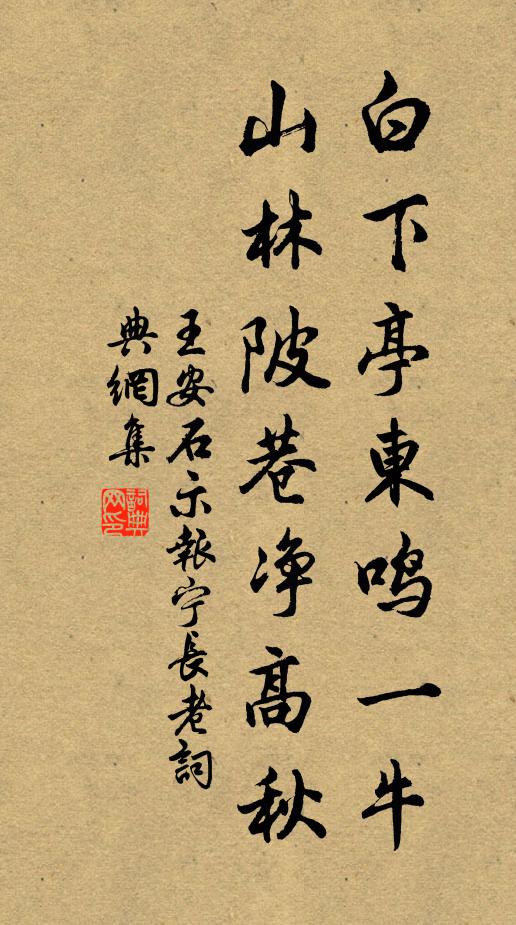 白下亭東鳴一牛
山林陂巷净高秋
王安石示報宁長老詞
典網集
詞典網印